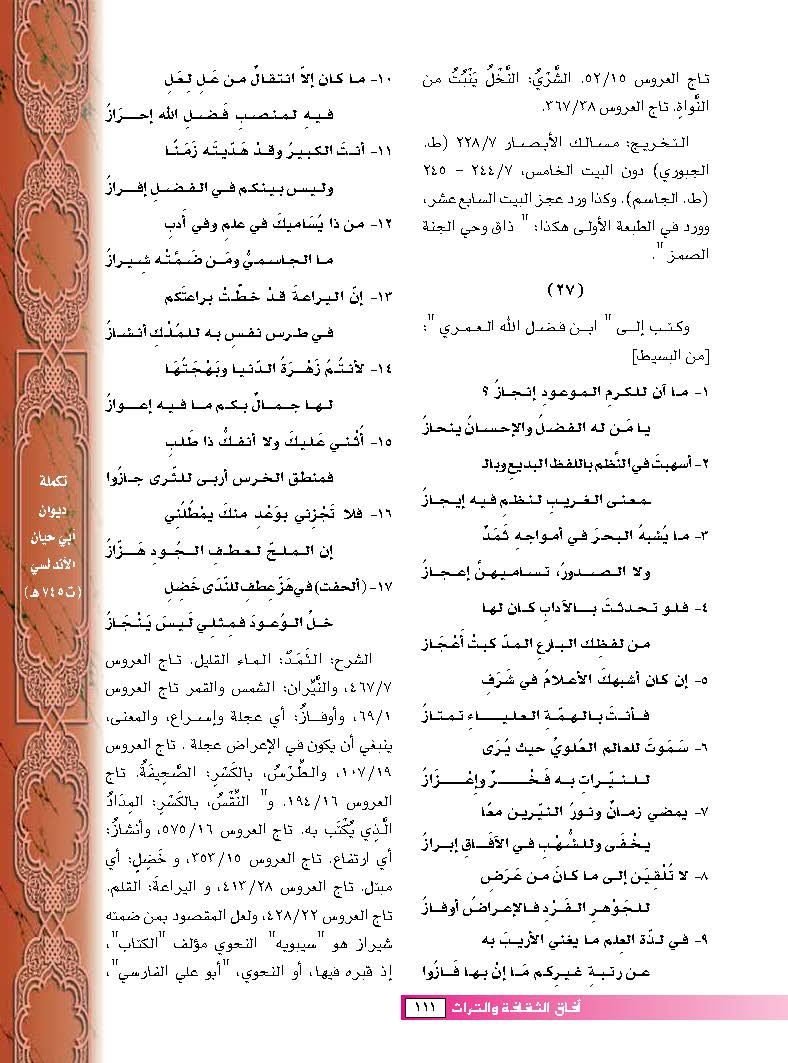 تاج العروس ٥٢/١٥. الشَّرْيُ: النَّخْلُ يَنْبُتُ من
النَّواةِ. تاج العروس ٣٦٧/٣٨.
التخريج: مسالك الأبصار ٢٢٨/٧ (ط.
الجبوري) دون البيت الخامس، ٢٤٤/٧ – ٢٤٥
(ط. الجاسم). وكذا ورد عجز البيت السابع عشر،
وورد في الطبعة الأولى هكذا: " ذاق وحي الجنة
الصمز ".
(٢٧)
وكتب إلى " ابن فضل الله العمري ":
[من البسيط]
١- ما آن للكرمِ الموعودِ إنجازُ ؟
يا مَن له الفضلُ والإحسانُ ينحازُ
٢- أسهبتَ في النَّظم باللفظ البديعِ وبالـ
ـمعنى الغريبِ لنظمٍ فيه إيجازُ
٣- ما يُشبهُ البحرَ في أمواجهِ ثَمَدٌ
ولا الصدورُ، تساميهنَّ إعجازُ
٤- فلو تحدثتَ بالآدابِ كان لها
من لفظِكَ البارعِ المدّ كبتْ أعْجَازُ
٥- إن كان أشبهكَ الأعلامُ في شَرَفٍ
فأنتَ بالهمّةِ العلياءِ تمتازُ
٦- سَمَوتَ للعالمِ العُلويِّ حيث يُرَى
للنيّراتِ به فَخْرٌ وإعْزَازُ
٧- يمضي زمانٌ ونورُ النيّرين معًا
يخْفَى وللشُّهْبِ في الآفَاقِ إبرازُ
٨- لا تُلْقِيَن إلى ما كانَ من عَرَضٍ
للجَوْهرِ الفَرْدِ فالإعراضُ أوفازُ
٩- في لذّة العِلم ما يغني الأريبَ به
عن رتبةِ غيرِكم مَا إنْ بها فَازُوا
١٠- ما كان إلاَّ انتقالٌ من عَلٍ لِعَلٍ
فيهِ لمنصبِ فَضلِ الله إحرَازُ
١١- أنتَ الكبيرُ وقدْ هَدّيتَه زَمَنًا
وليس بينكم في الفضلِ إفرازُ
١٢- من ذا يُسَاميكَ في علمٍ وفي أدبٍ
ما الجاسميُّ ومَن ضَمَّتْه شِيرازُ
١٣- إنّ اليراعةَ قدْ خطّتْ براعتَكم
في طرسِ نفسٍ به للمُلْكِ أنشازُ
١٤- لأنتُمُ زَهْرَةُ الدّنيا وبَهْجَتُهَا
لها جمالٌ بكم ما فيه إعوازُ
١٥- أُثْني عَليكَ ولا أنفكُّ ذا طَلبٍ
فمنطق الخرس أربى للثّرى جازُوا
١٦- فلا تَجْزِني بوَعْدٍ منكَ يمْطُلُني
إن الملحّ لعطفِ الجُودِ هَزّازُ
١٧- (ألحفت) في هَزّ عِطفٍ للنّدَى خَضِلٍ
خلُّ الوُعودَ فمِثلي لَيسَ يَنْجَازُ
الشرح: الثَّمَدُ: الماء القليل. تاج العروس
٤٦٧/٧، والنَّيِّران: الشمس والقمر تاج العروس
٦٩/١، وأوفازُ: أي عجلة وإسراع، والمعنى،
ينبغي أن يكون في الإعراض عجلة . تاج العروس
١٠٧/١٩، والطِّرْسُ، بالكَسْرِ: الصَّحِيفَةُ. تاج
العروس ١٩٤/١٦. و" النِّقْسُ، بالكَسْرِ: المِدَادُ
الَّذِي يُكْتَب به. تاج العروس ٥٧٥/١٦، وأنشازُ:
أي ارتفاع. تاج العروس ٣٥٣/١٥، و خَضِلٍ: أي
مبتل. تاج العروس ٤١٣/٢٨، و اليراعة: القلم.
تاج العروس ٤٢٨/٢٢، ولعل المقصود بمن ضمته
شيراز هو "سيبويه" النحوي مؤلف "الكتاب"،
إذ قبره فيها، أو النحوي، "أبو علي الفارسي"،
تكملة
ديوان
أبي حيان
الأندلسي
(ت٧٤٥هـ)
آفاق الثقافة والتراث ١١١